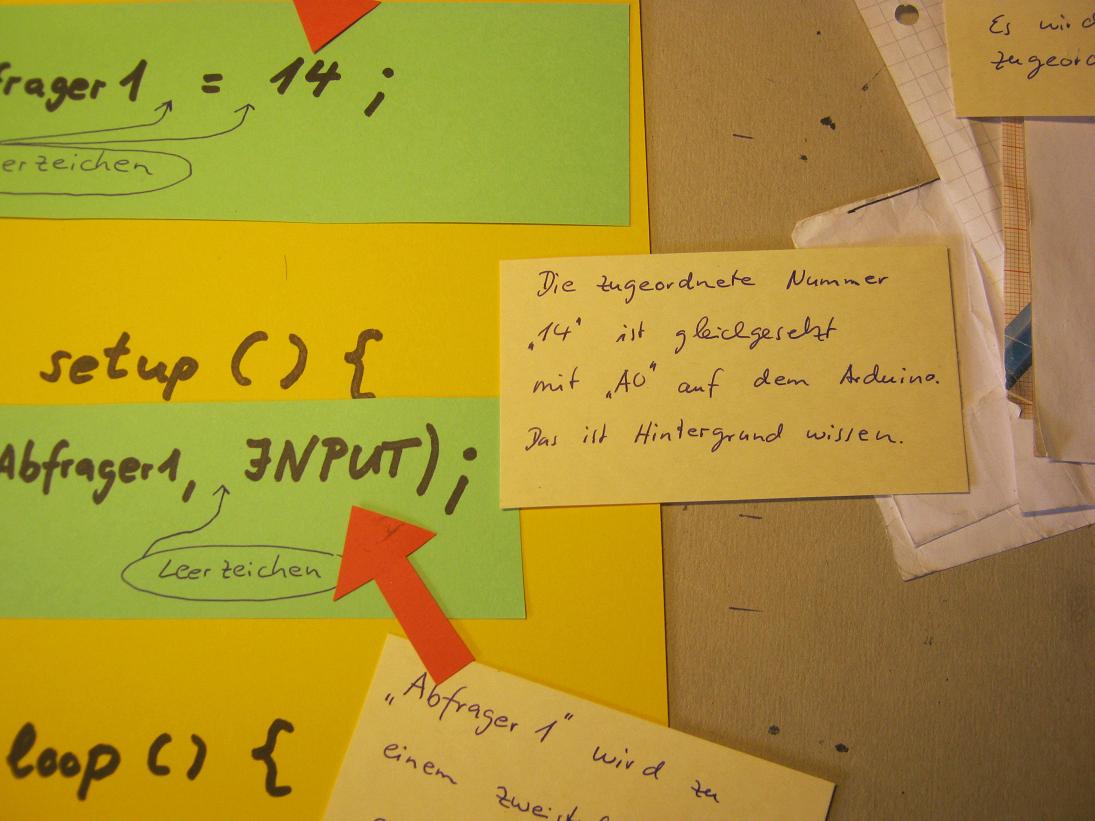 frager1 = 14 ;
erzeichen
setup () {
Abfrager1, INPUT) ;
Leerzeichen
loop () {
Die zugeordnete Nummer
„14" ist gleichgesetzt
mit „A0" auf dem Arduino.
Das ist Hintergrund wissen.
Es wird
zugeord
„Abfrager 1" wird zu
einem zweist